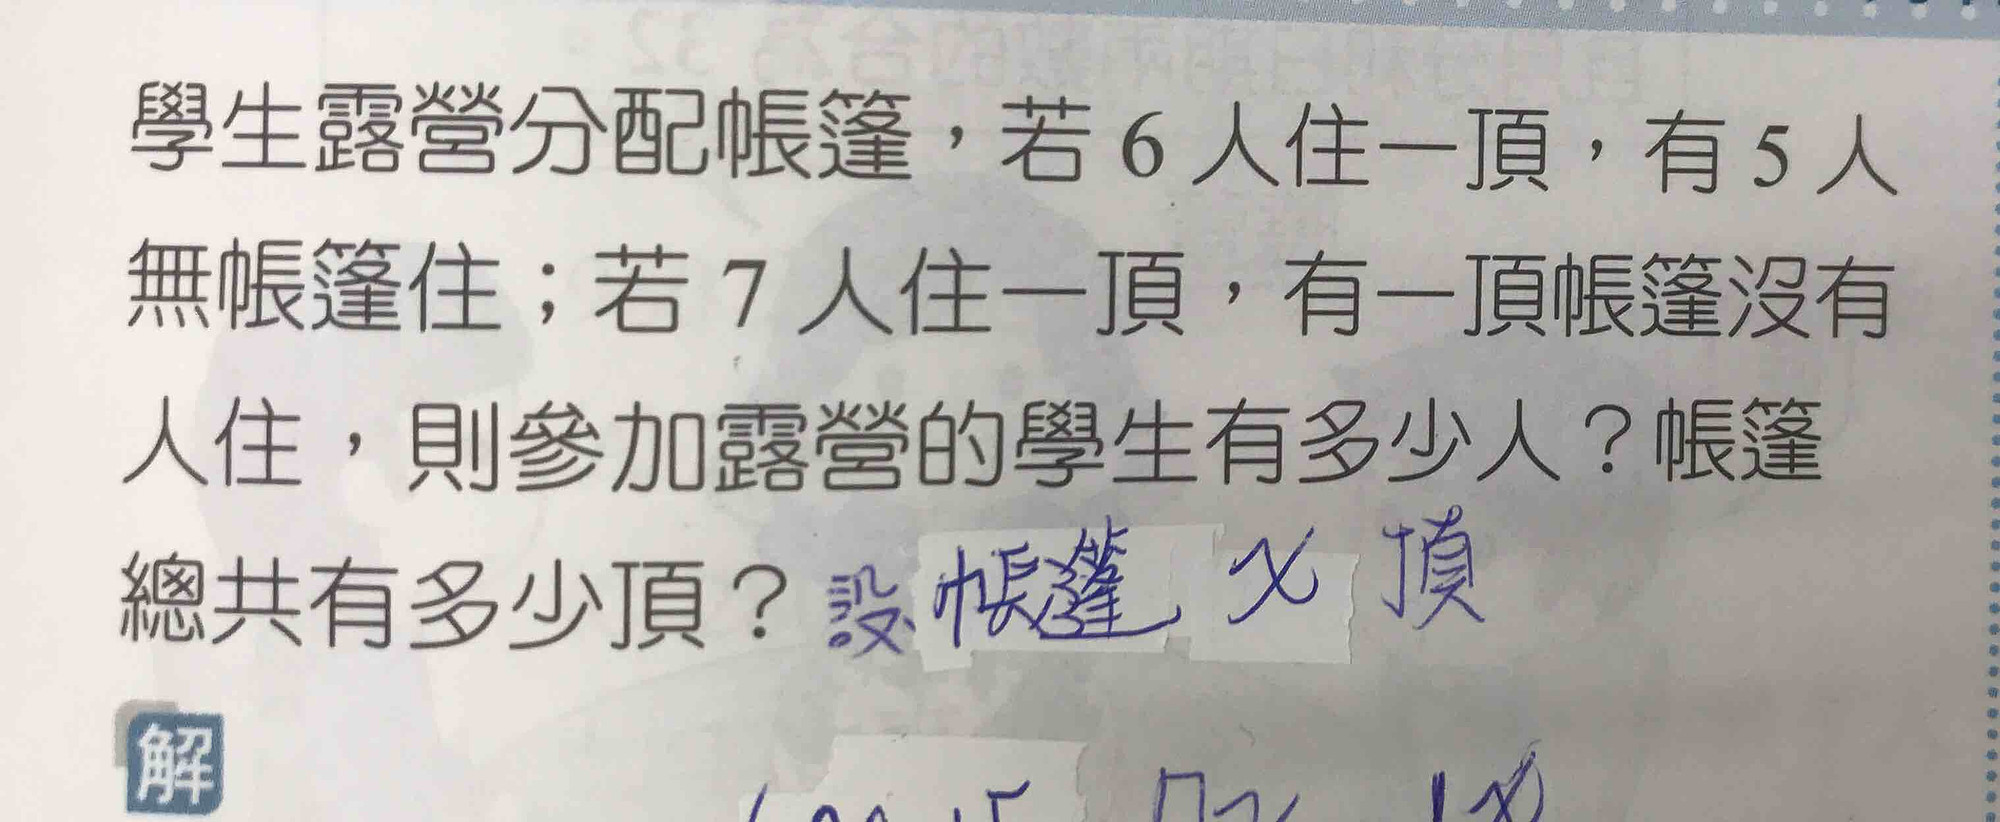 學生露營分配帳篷，若 6 人住一頂，有 5 人
無帳篷住；若 7 人住一頂，有一頂帳篷沒有
人住，則參加露營的學生有多少人？帳篷
總共有多少頂？設帳篷 x 頂
解